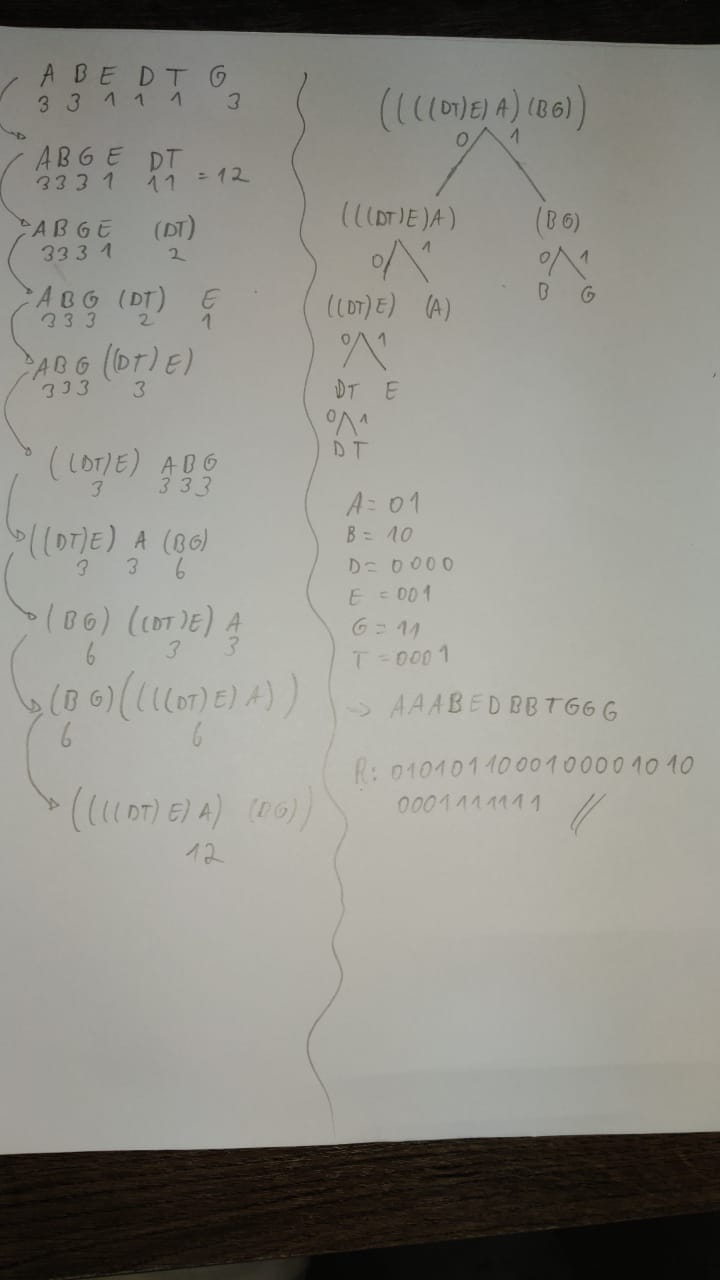 A B E D T G
3 3 1 1 1 3
A B G E DT
3 3 3 1 1 1 = 12
A B G E (DT)
3 3 3 1 2
A B G (DT) E
3 3 3 2 1
A B G ((DT) E)
3 3 3 3
((DT)E) A B G
3 3 3 3
((DT)E) A (BG)
3 3 6
(BG) ((DT)E) A
6 3 3
(BG)((((DT)E)A))
6 6
((((DT)E)A) (BG))
12
((((DT)E)A)(BG))
0 1
(((DT)E)A) (BG)
0 1 0 1
((DT)E) (A) B G
0 1
DT E
0 1
D T
A = 01
B = 10
D = 0000
E = 001
G = 11
T = 0001
-> AAABEDBBTGGG
R: 010101100010000 1010
0001111111 //